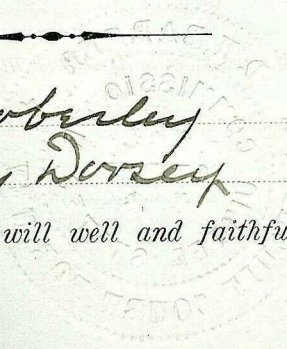 oberley
y Dorsey
will well and faithfu